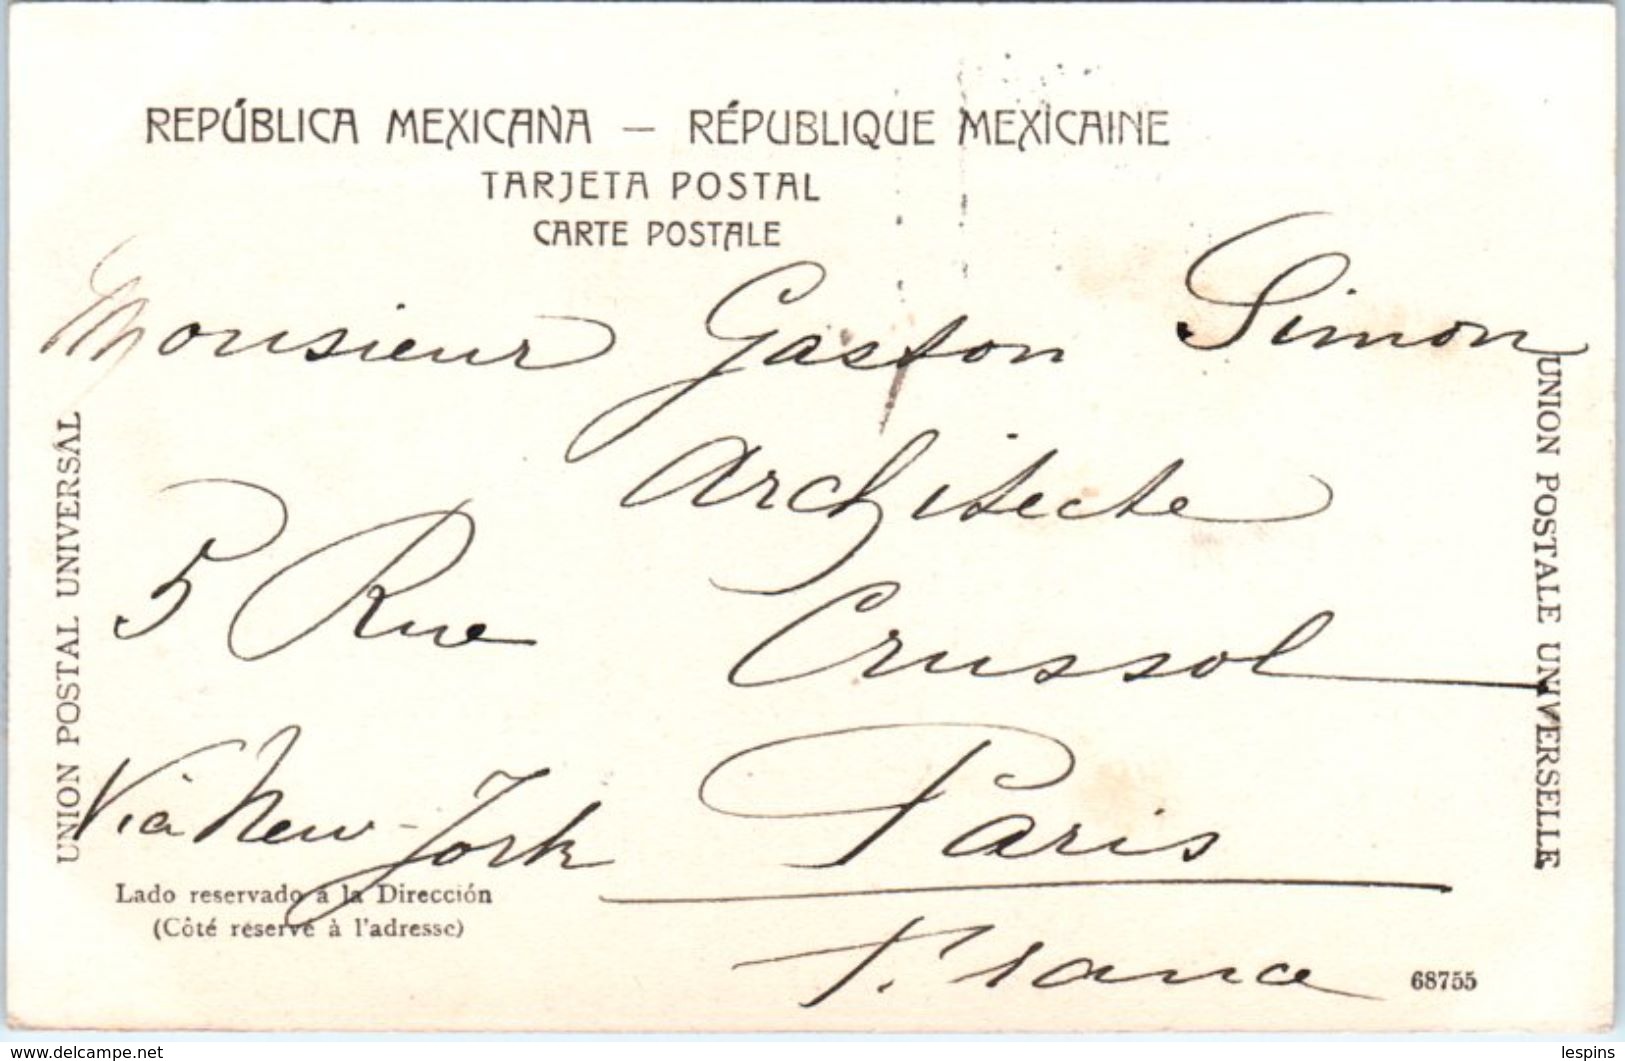 REPÚBLICA MEXICANA — RÉPUBLIQUE MEXICAINE
TARJETA POSTAL
CARTE POSTALE
Monsieur Gaston Simon
Architecte
5 Rue Crussol
Via New-York Paris
France
UNION POSTAL UNIVERSAL
UNION POSTALE UNIVERSELLE
Lado reservado á la Dirección
(Côté réservé à l'adresse)
68755
www.delcampe.net
lespins